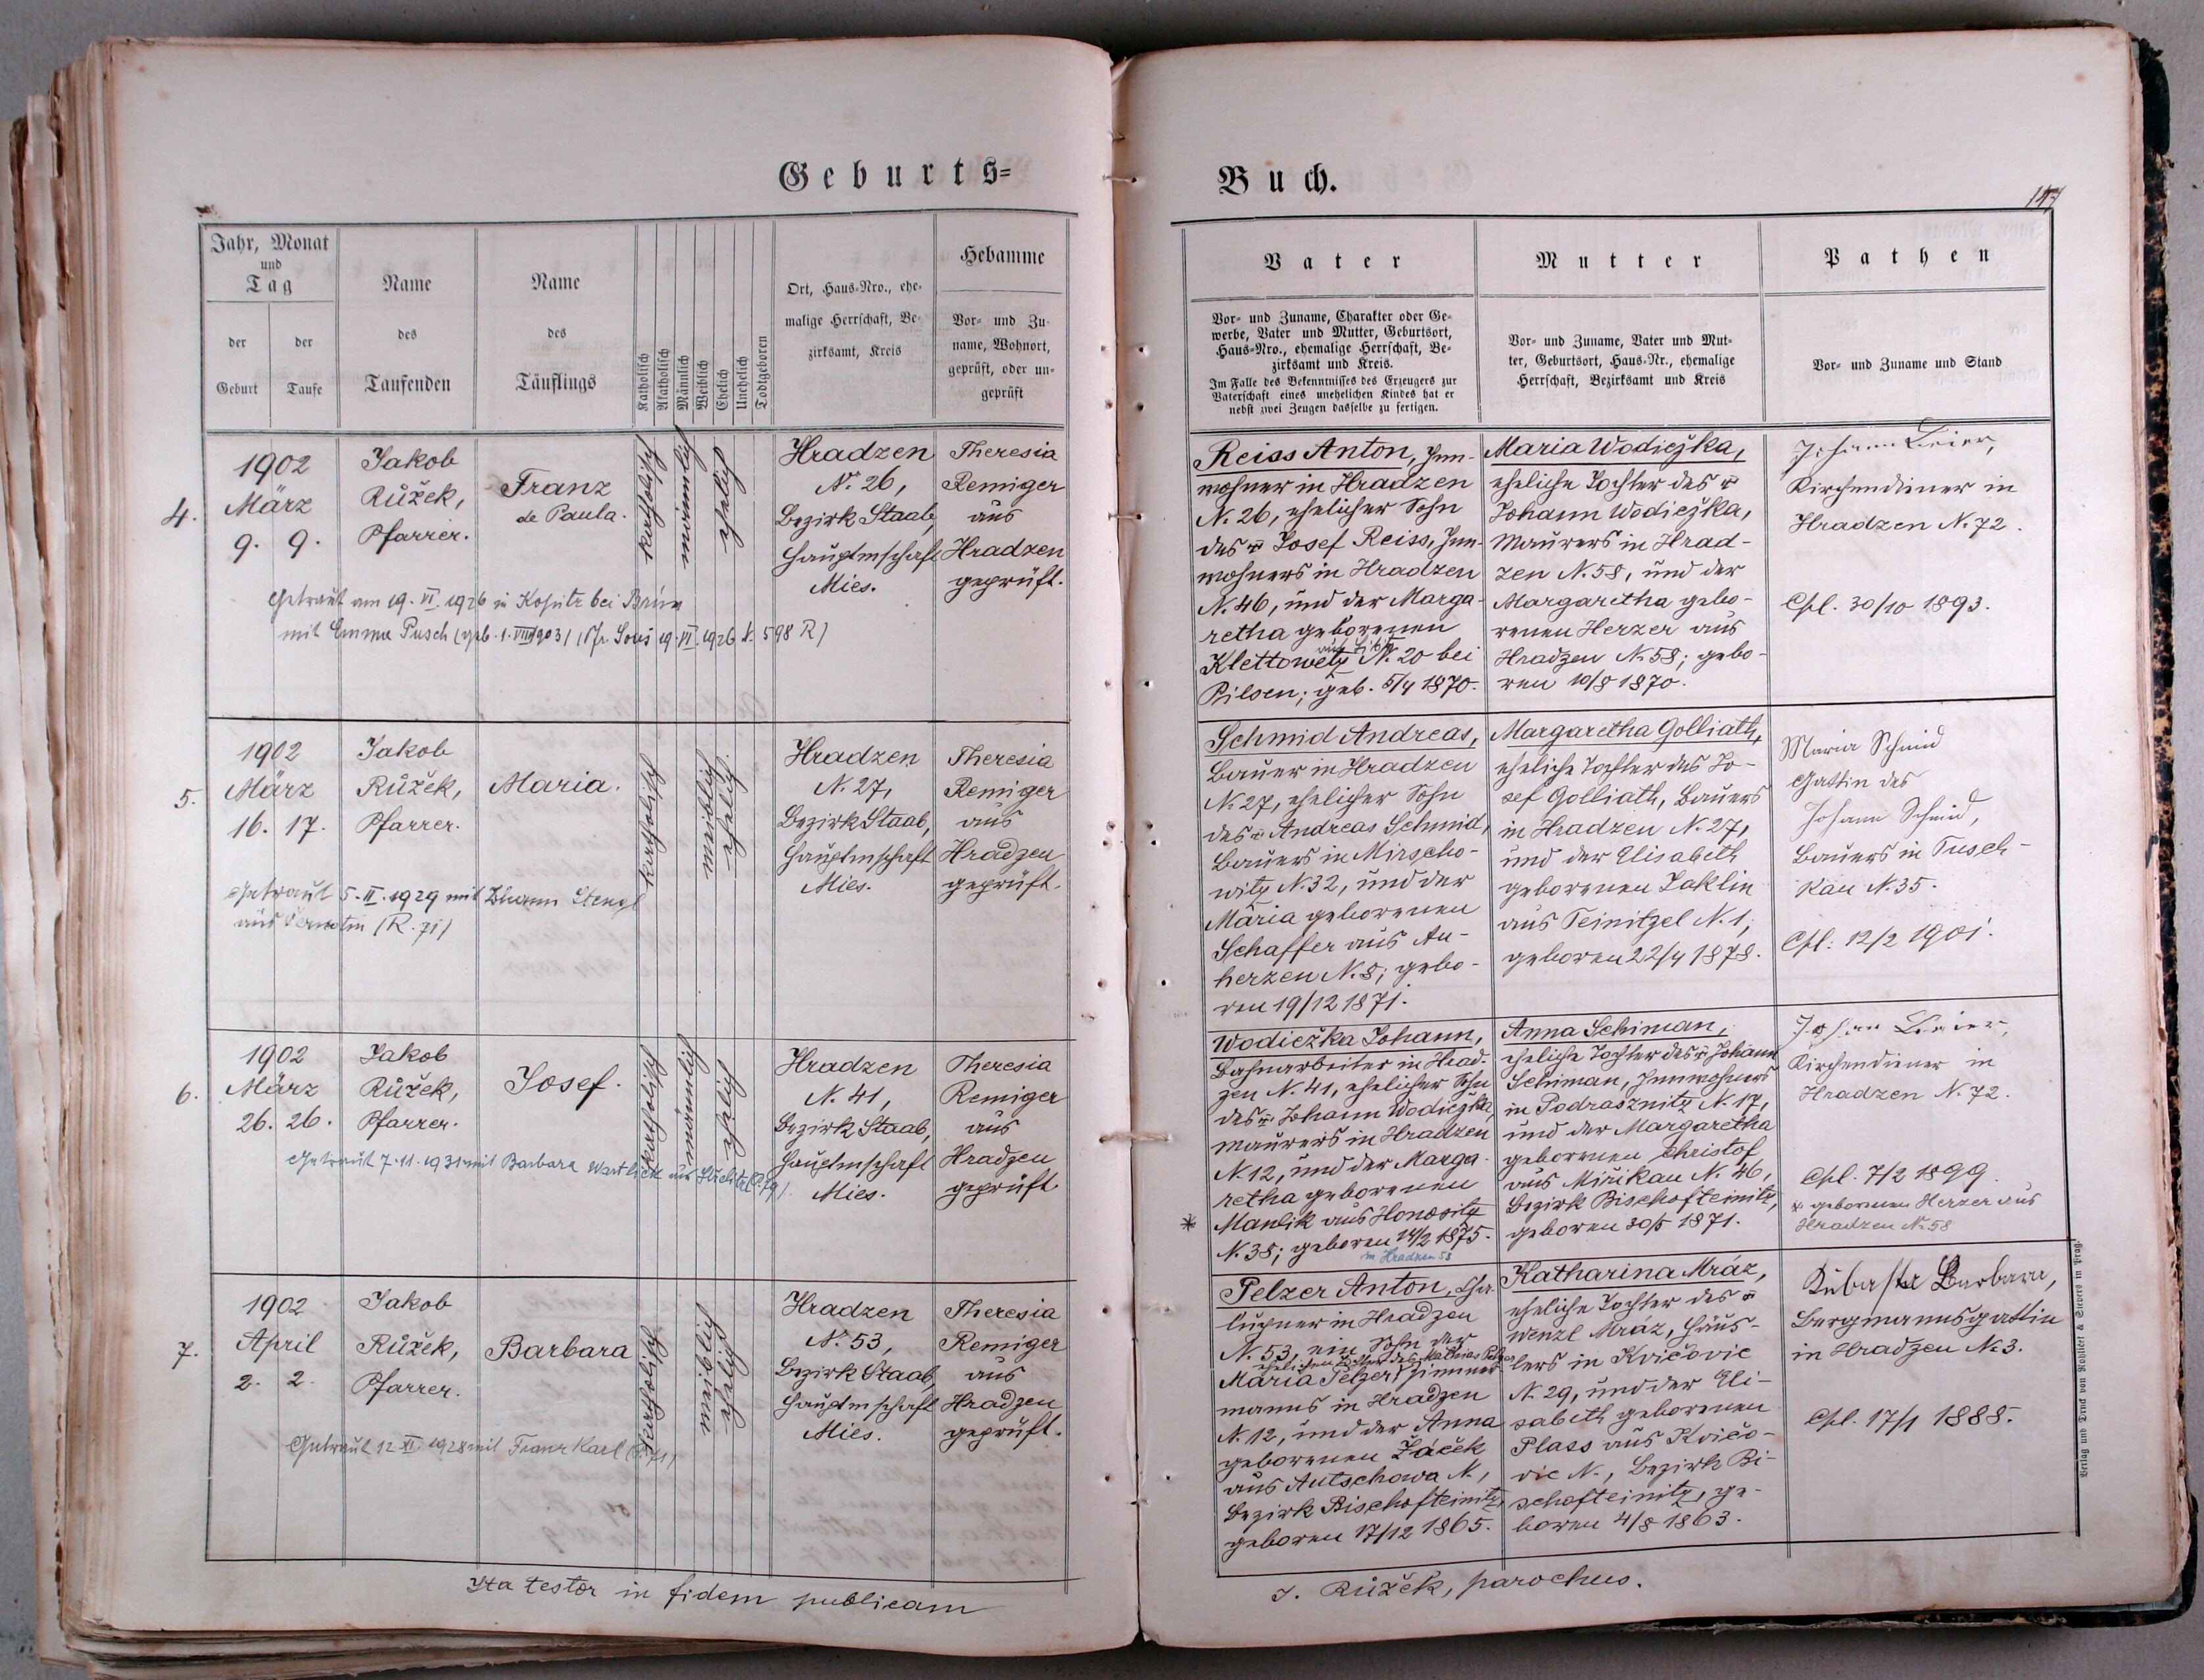 Geburts=
Jahr, Monat
und
Tag
der
Geburt
der
Taufe
Name
des
Taufenden
Name
des
Täuflings
Katholisch
Akatholisch
Männlich
Weiblich
Ehelich
Unehelich
Todtgeboren
Ort, Haus-Nro., ehe-
malige Herrschaft, Be-
zirksamt, Kreis
Hebamme
Vor- und Zu-
name, Wohnort,
geprüft, oder un-
geprüft
4.
1902
März
9. 9.
Jakob
Růžek,
Pfarrer.
Franz
de Paula.
katholisch
männlich
ehelich
Hradzen
N. 26,
Bezirk Staab,
Hauptmschaft
Mies.
Theresia
Remiger
aus
Hradzen
geprüft.
Getraut am 19. VI. 1926 in Kosutz bei Brüx
mit Emma Pusch (geb. 1. VIII 1903) 19. VI. 1926 598 R)
5.
1902
März
16. 17.
Jakob
Růžek,
Pfarrer.
Maria.
katholisch
weiblich
ehelich.
Hradzen
N. 27,
Bezirk Staab,
Hauptmschaft
Mies.
Theresia
Remiger
aus
Hradzen
geprüft.
Getraut 5. II. 1929 mit Johann Stengl
aus (R. 71)
6.
1902
März
26. 26.
Jakob
Růžek,
Pfarrer.
Josef.
katholisch
männlich
ehelich
Hradzen
N. 41,
Bezirk Staab,
Hauptmschaft
Mies.
Theresia
Remiger
aus
Hradzen
geprüft.
Getraut 7. 11. 1931 mit Barbara aus
7.
1902
April
2. 2.
Jakob
Růžek,
Pfarrer.
Barbara
katholisch
weiblich
ehelich
Hradzen
N. 53,
Bezirk Staab,
Hauptmschaft
Mies.
Theresia
Remiger
aus
Hradzen
geprüft.
Getraut 12 XI. 1928 mit Franz Karl
Ita testor in fidem publicam
Buch.
Vater
Vor- und Zuname, Charakter oder Ge-
werbe, Vater und Mutter, Geburtsort,
Haus-Nro., ehemalige Herrschaft, Be-
zirksamt und Kreis.
Im Falle des Bekenntnisses des Erzeugers zur
Vaterschaft eines unehelichen Kindes hat er
nebst zwei Zeugen dasselbe zu fertigen.
Mutter
Vor- und Zuname, Vater und Mut-
ter, Geburtsort, Haus-Nr., ehemalige
Herrschaft, Bezirksamt und Kreis
Pathen
Vor- und Zuname und Stand
Reiss Anton, Inn-
wohner in Hradzen
N. 26, ehelicher Sohn
des Josef Reiss, Inn-
wohners in Hradzen
N. 46, und der Marga-
retha geborenen
Klettowetz N. 20 bei
Pilsen; geb. 5/4 1870.
Maria Wodiežka,
eheliche Tochter des
Johann Wodiežka,
Maurers in Hrad-
zen N. 58, und der
Margaretha gebo-
renen Herzer aus
Hradzen N. 58; gebo-
ren 10/8 1870.
Johann Leier,
Kirchendiener in
Hradzen N. 72.
Cpl. 30/10 1893.
Schmid Andreas,
Bauer in Hradzen
N. 27, ehelicher Sohn
des Andreas Schmid,
Bauers in Mirscho-
witz N. 32, und der
Maria geborenen
Schaffer aus Au-
herzen N. 8; gebo-
ren 19/12 1871.
Margaretha Golliath,
eheliche Tochter des Jo-
sef Golliath, Bauers
in Hradzen N. 27,
und der Elisabeth
geborenen Jaklin
aus Teinitzel N. 1;
geboren 22/4 1878.
Maria Schmid
Gattin des
Johann Schmid,
Bauers in Tusch-
kau N. 35.
Cpl: 12/2 1901.
Wodiežka Johann,
Bahnarbeiter in Hrad-
zen N. 41, ehelicher Sohn
des Johann Wodiežka,
Maurers in Hradzen
N. 12, und der Marga-
retha geborenen
* Manlik aus Honositz
N. 38; geboren 14/2 1875.
in Hradzen 58
Anna Schiman,
eheliche Tochter des Johann
Schiman, Innwohners
in Podrasznitz N. 17,
und der Margaretha
geborenen Christof
aus Mirikau N. 46,
Bezirk Bischofteinitz,
geboren 30/5 1871.
Johann Leier,
Kirchendiener in
Hradzen N. 72.
Cpl. 7/2 1899.
* geborenen Herzer aus
Hradzen N. 58
Pelzer Anton, Cha-
lupner in Hradzen
N. 53, ein Sohn der
ehelichen Sohn des Mathias Pelzer
Maria Pelzer, Zimmer-
manns in Hradzen
N. 12, und der Anna
geborenen Žáček
aus Autschowa N.,
Bezirk Bischofteinitz,
geboren 17/12 1865.
Katharina Mráz,
eheliche Tochter des
Wenzl Mráz, Häus-
lers in Kvičovic
N. 29, und der Eli-
sabeth geborenen
Plass aus Kvičo-
vic N., Bezirk Bi-
schofteinitz, ge-
boren 4/8 1863.
Kubasta Barbara,
Bergmannsgattin
in Hradzen N. 3.
Cpl. 17/1 1888.
J. Růžek, parochus.
Verlag und Druck von Rohliček & Sievers in Prag.